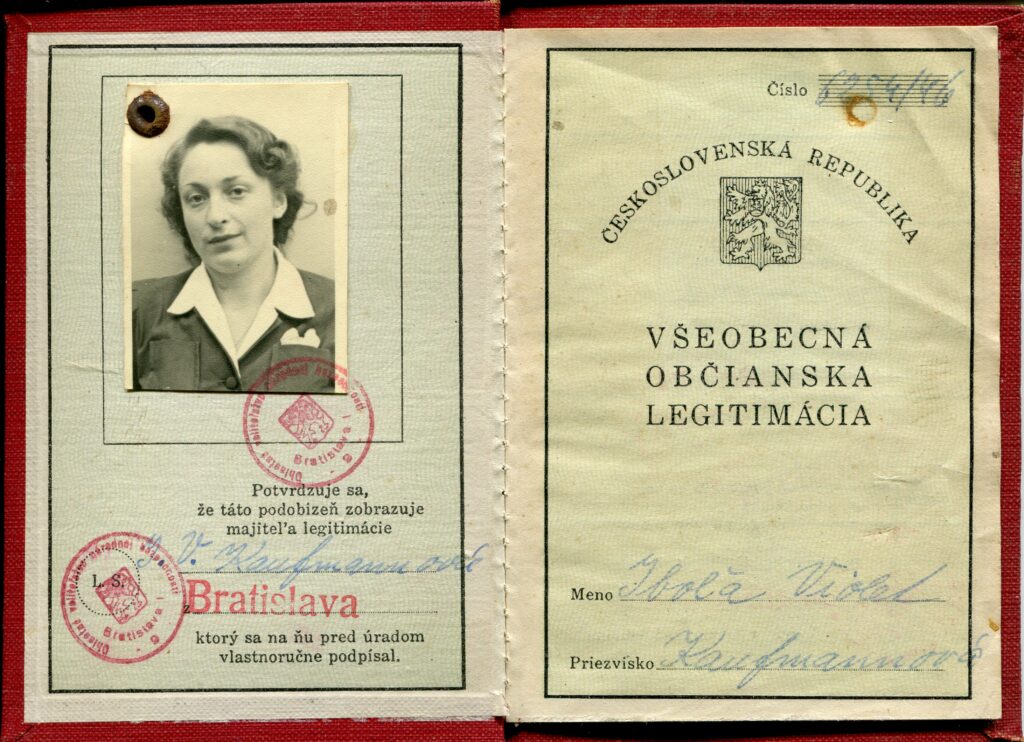 Potvrdzuje sa,
že táto podobizeň zobrazuje
majiteľa legitimácie
V. Kaufmannová
L. S.
z Bratislava
ktorý sa na ňu pred úradom
vlastnoručne podpísal.
Bratislava I
Bratislava I
Číslo 6254/46
ČESKOSLOVENSKÁ REPUBLIKA
VŠEOBECNÁ
OBČIANSKA
LEGITIMÁCIA
Meno Ibolá Violet
Priezvisko Kaufmannová